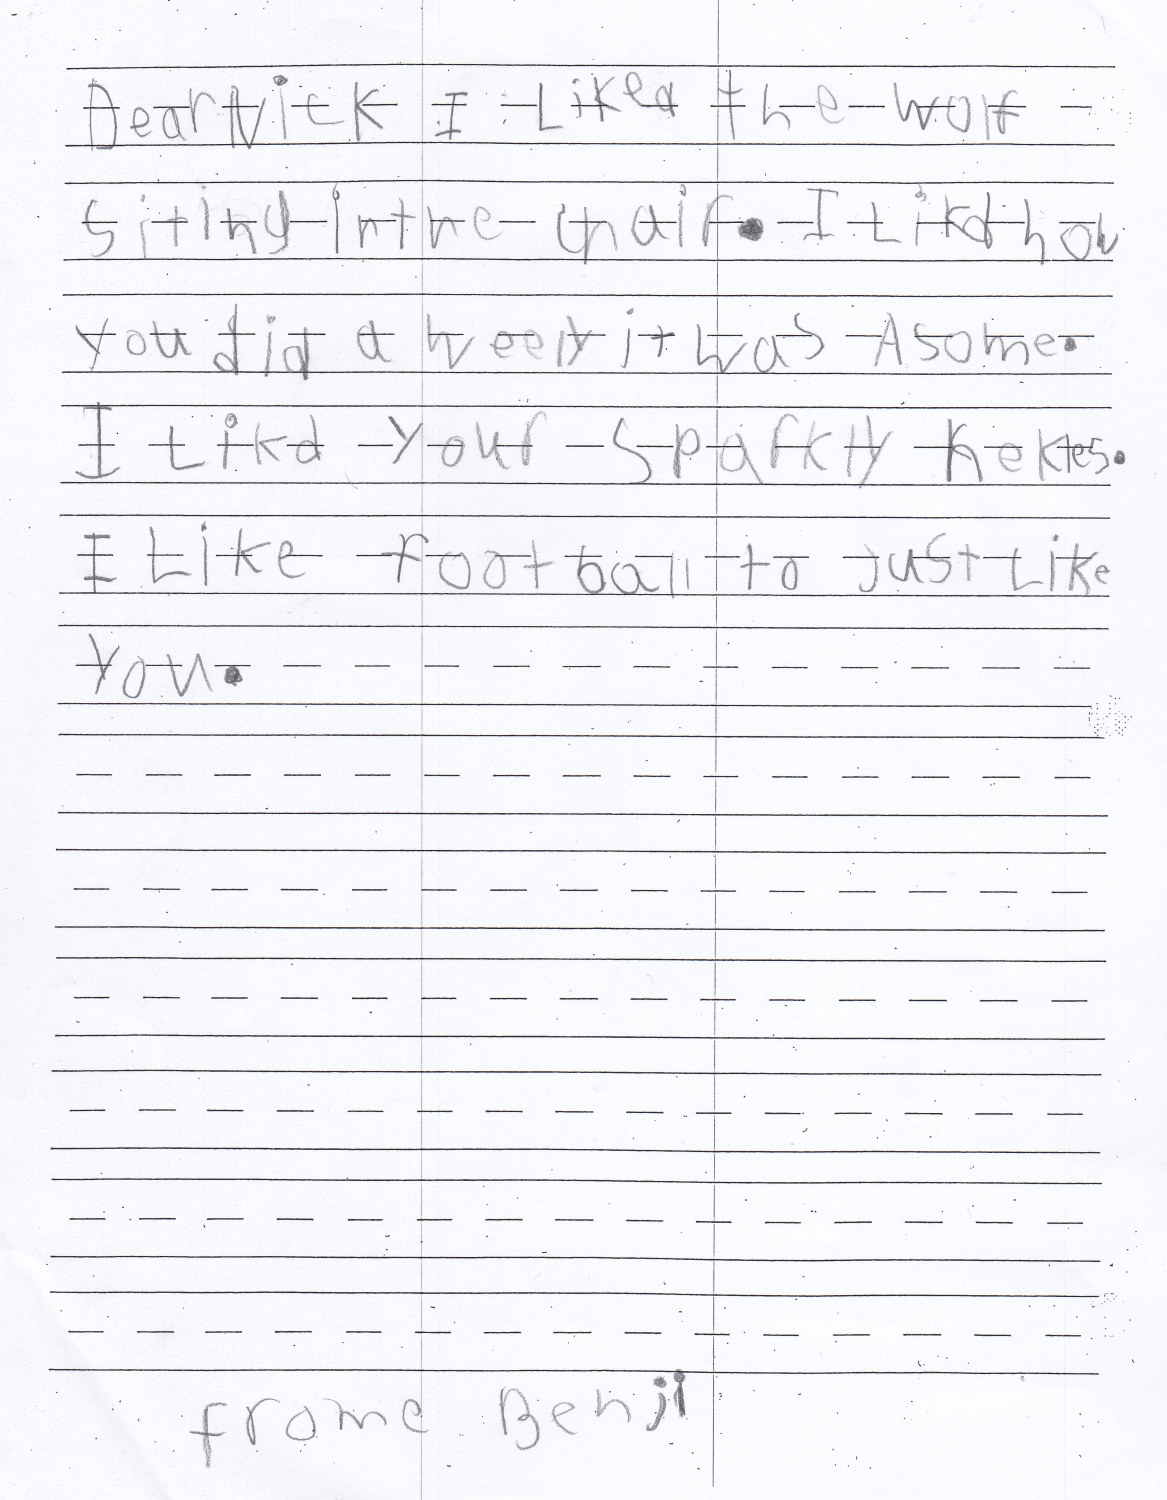 Dear Nick I Liked the wolf
siting in the chair. I Likd how
you did a weely it was Asome.
I Likd your sparkly nekles.
I Like football to just Like
you.
frome Benji